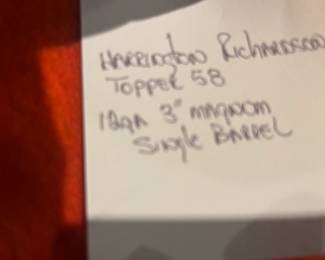 HARRINGTON RICHARDSSON
TOPPER 58
12GA 3" MAGNOM
SINGLE BARREL